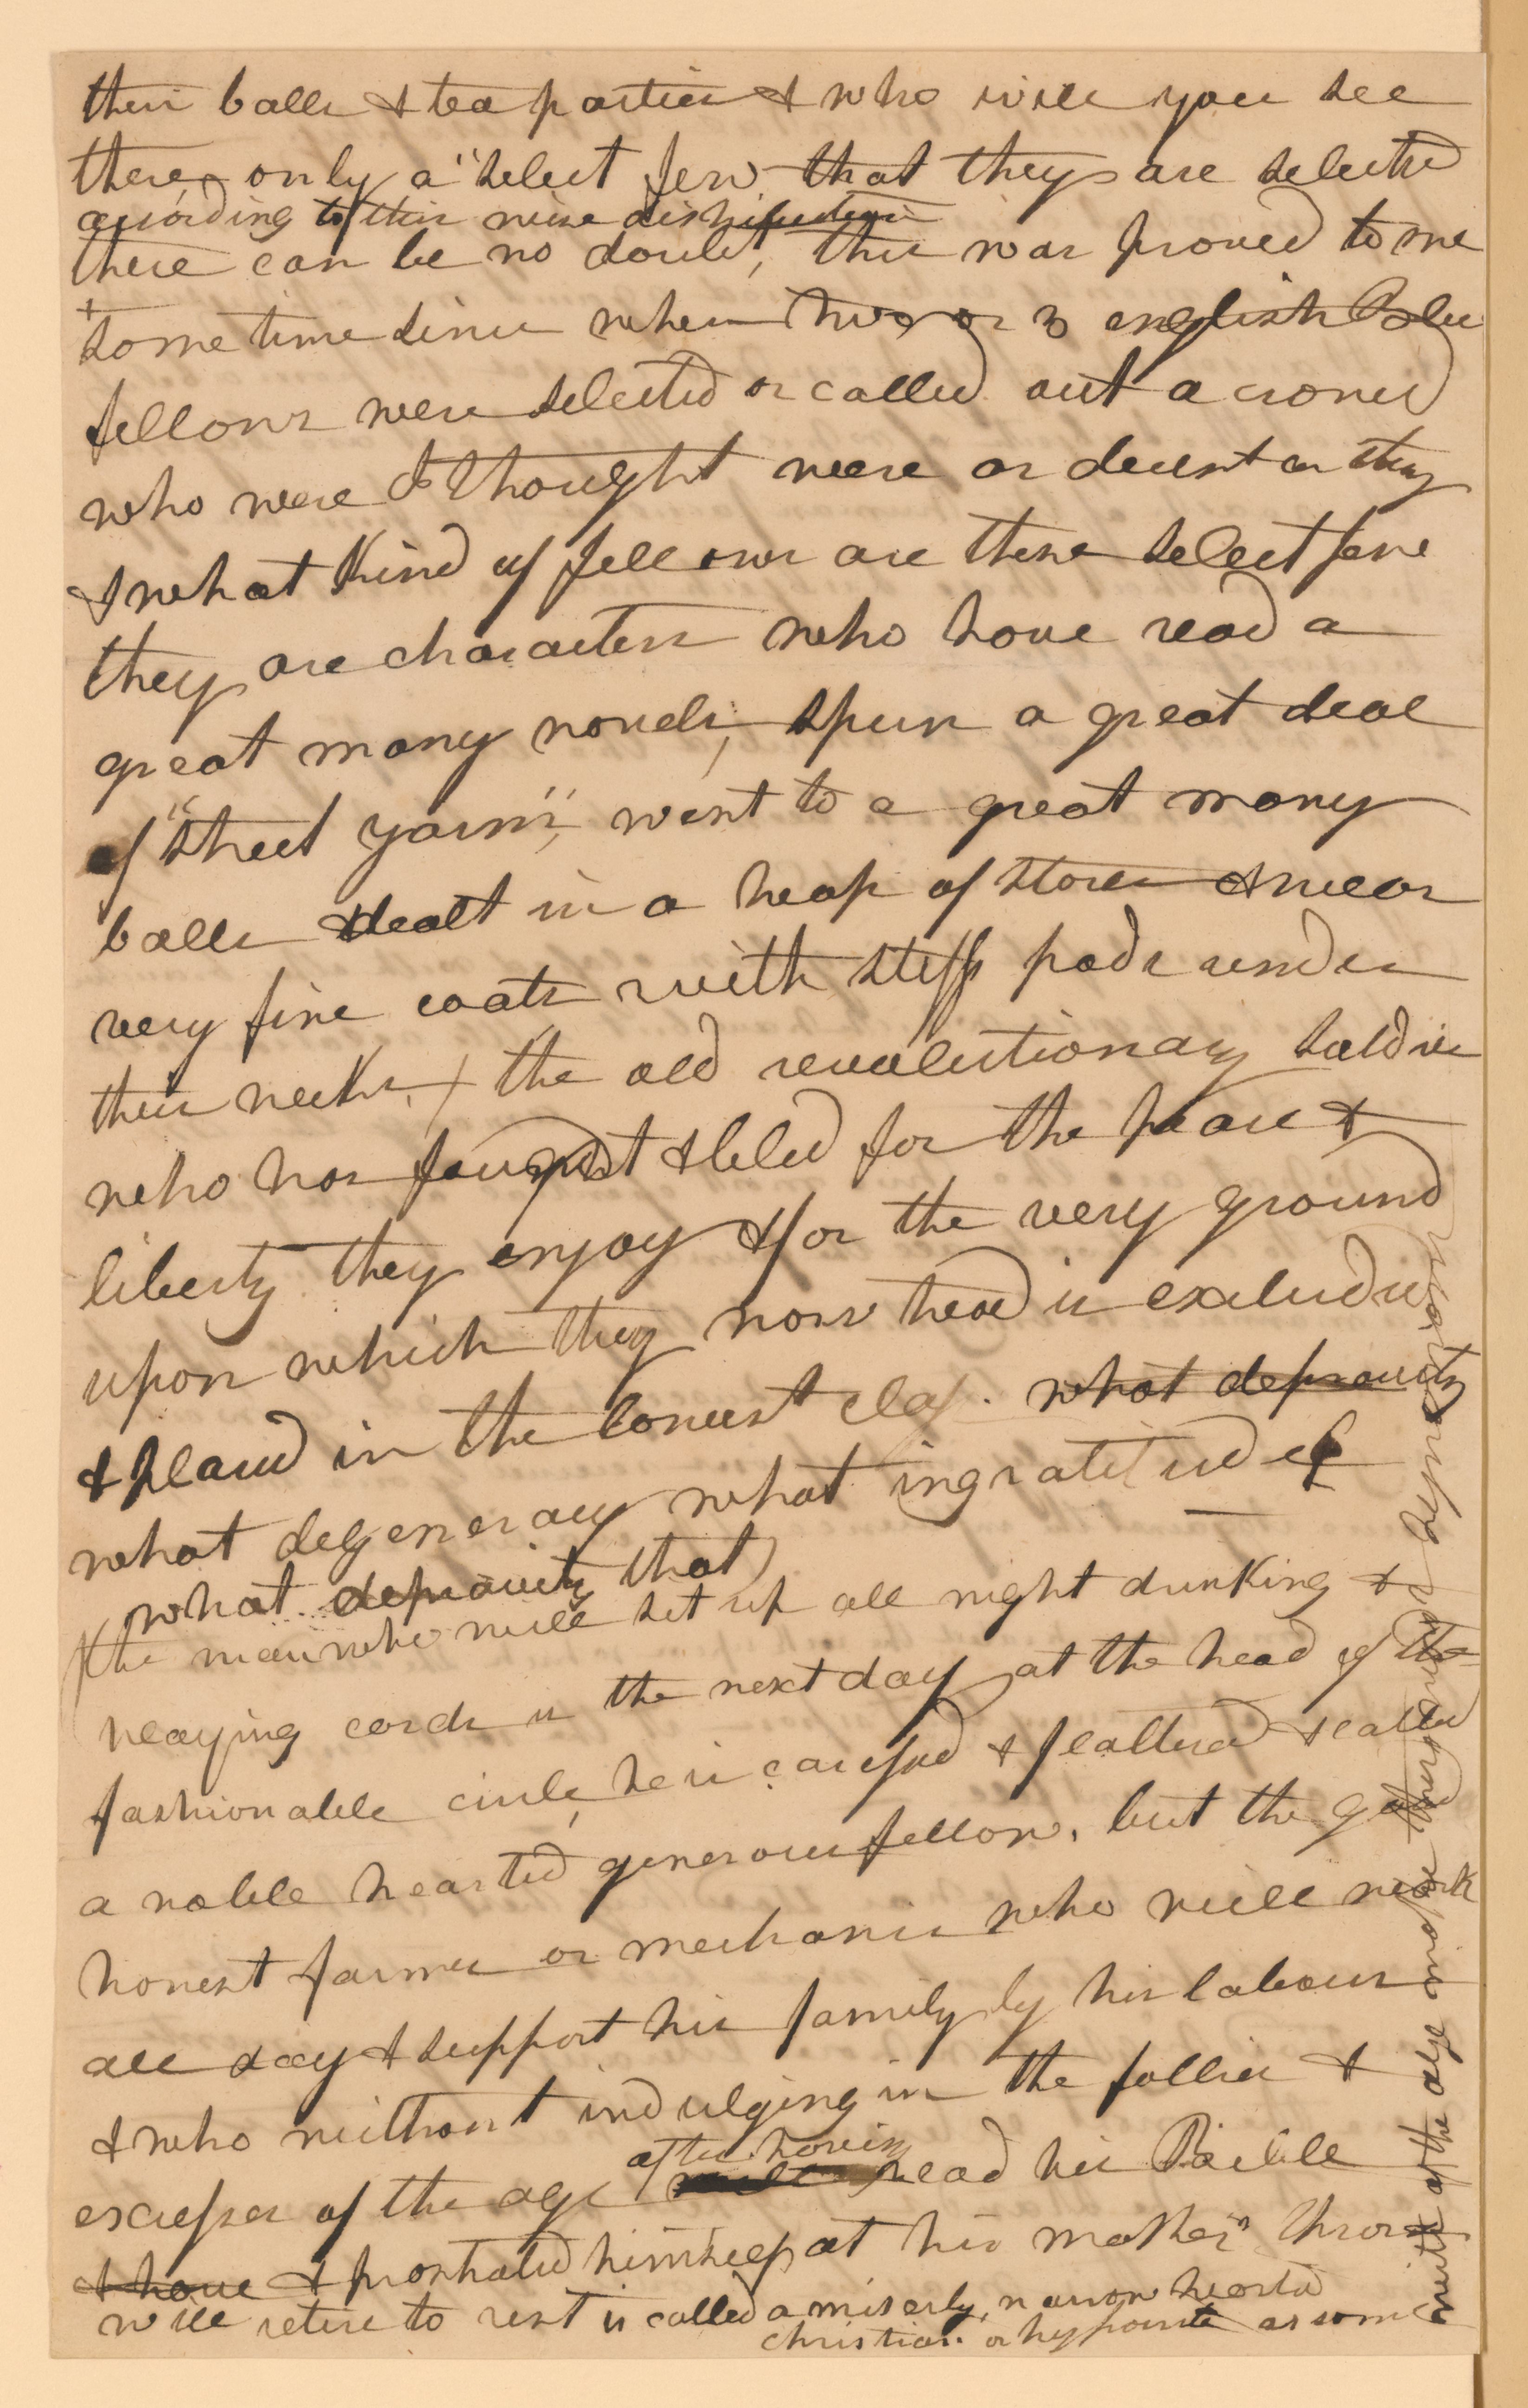 their balls & tea parties & who will you see
there, only a "select few that they are selected
according to their nice distinctions
there can be no doubt, this was proved to me
some time since when two or 3 english Blue
fellows were selected or called out a crowd
who were I thought were as decent as they
& what kind of fellows are these select few
they are characters who have read a
great many novels, spun a great deal
of "street yarn", went to a great many
balls & dealt in a heap of stores & wear
very fine coats with stiff pads under
their necks. & the old revolutionary soldier
who has fought & bled for the peace &
liberty they enjoy & for the very ground
upon which they now tread is excluded
& placed in the lowest class. what depravity
what degeneracy what ingratitude
what depravity that
the man who will set up all night drinking &
playing cards is the next day at the head of the
fashionable circle, he is caressed & flattered & called
a noble hearted generous fellow, but the good
honest farmer or mechanic who will work
all day & support his family by his labour
& who without indulging in the follies &
excesses of the age after having read his Bible
& have & prostrated himself at his maker's throne
will retire to rest is called a miserly, narrow hearted
christian. or hypocrite as some
wits of the age